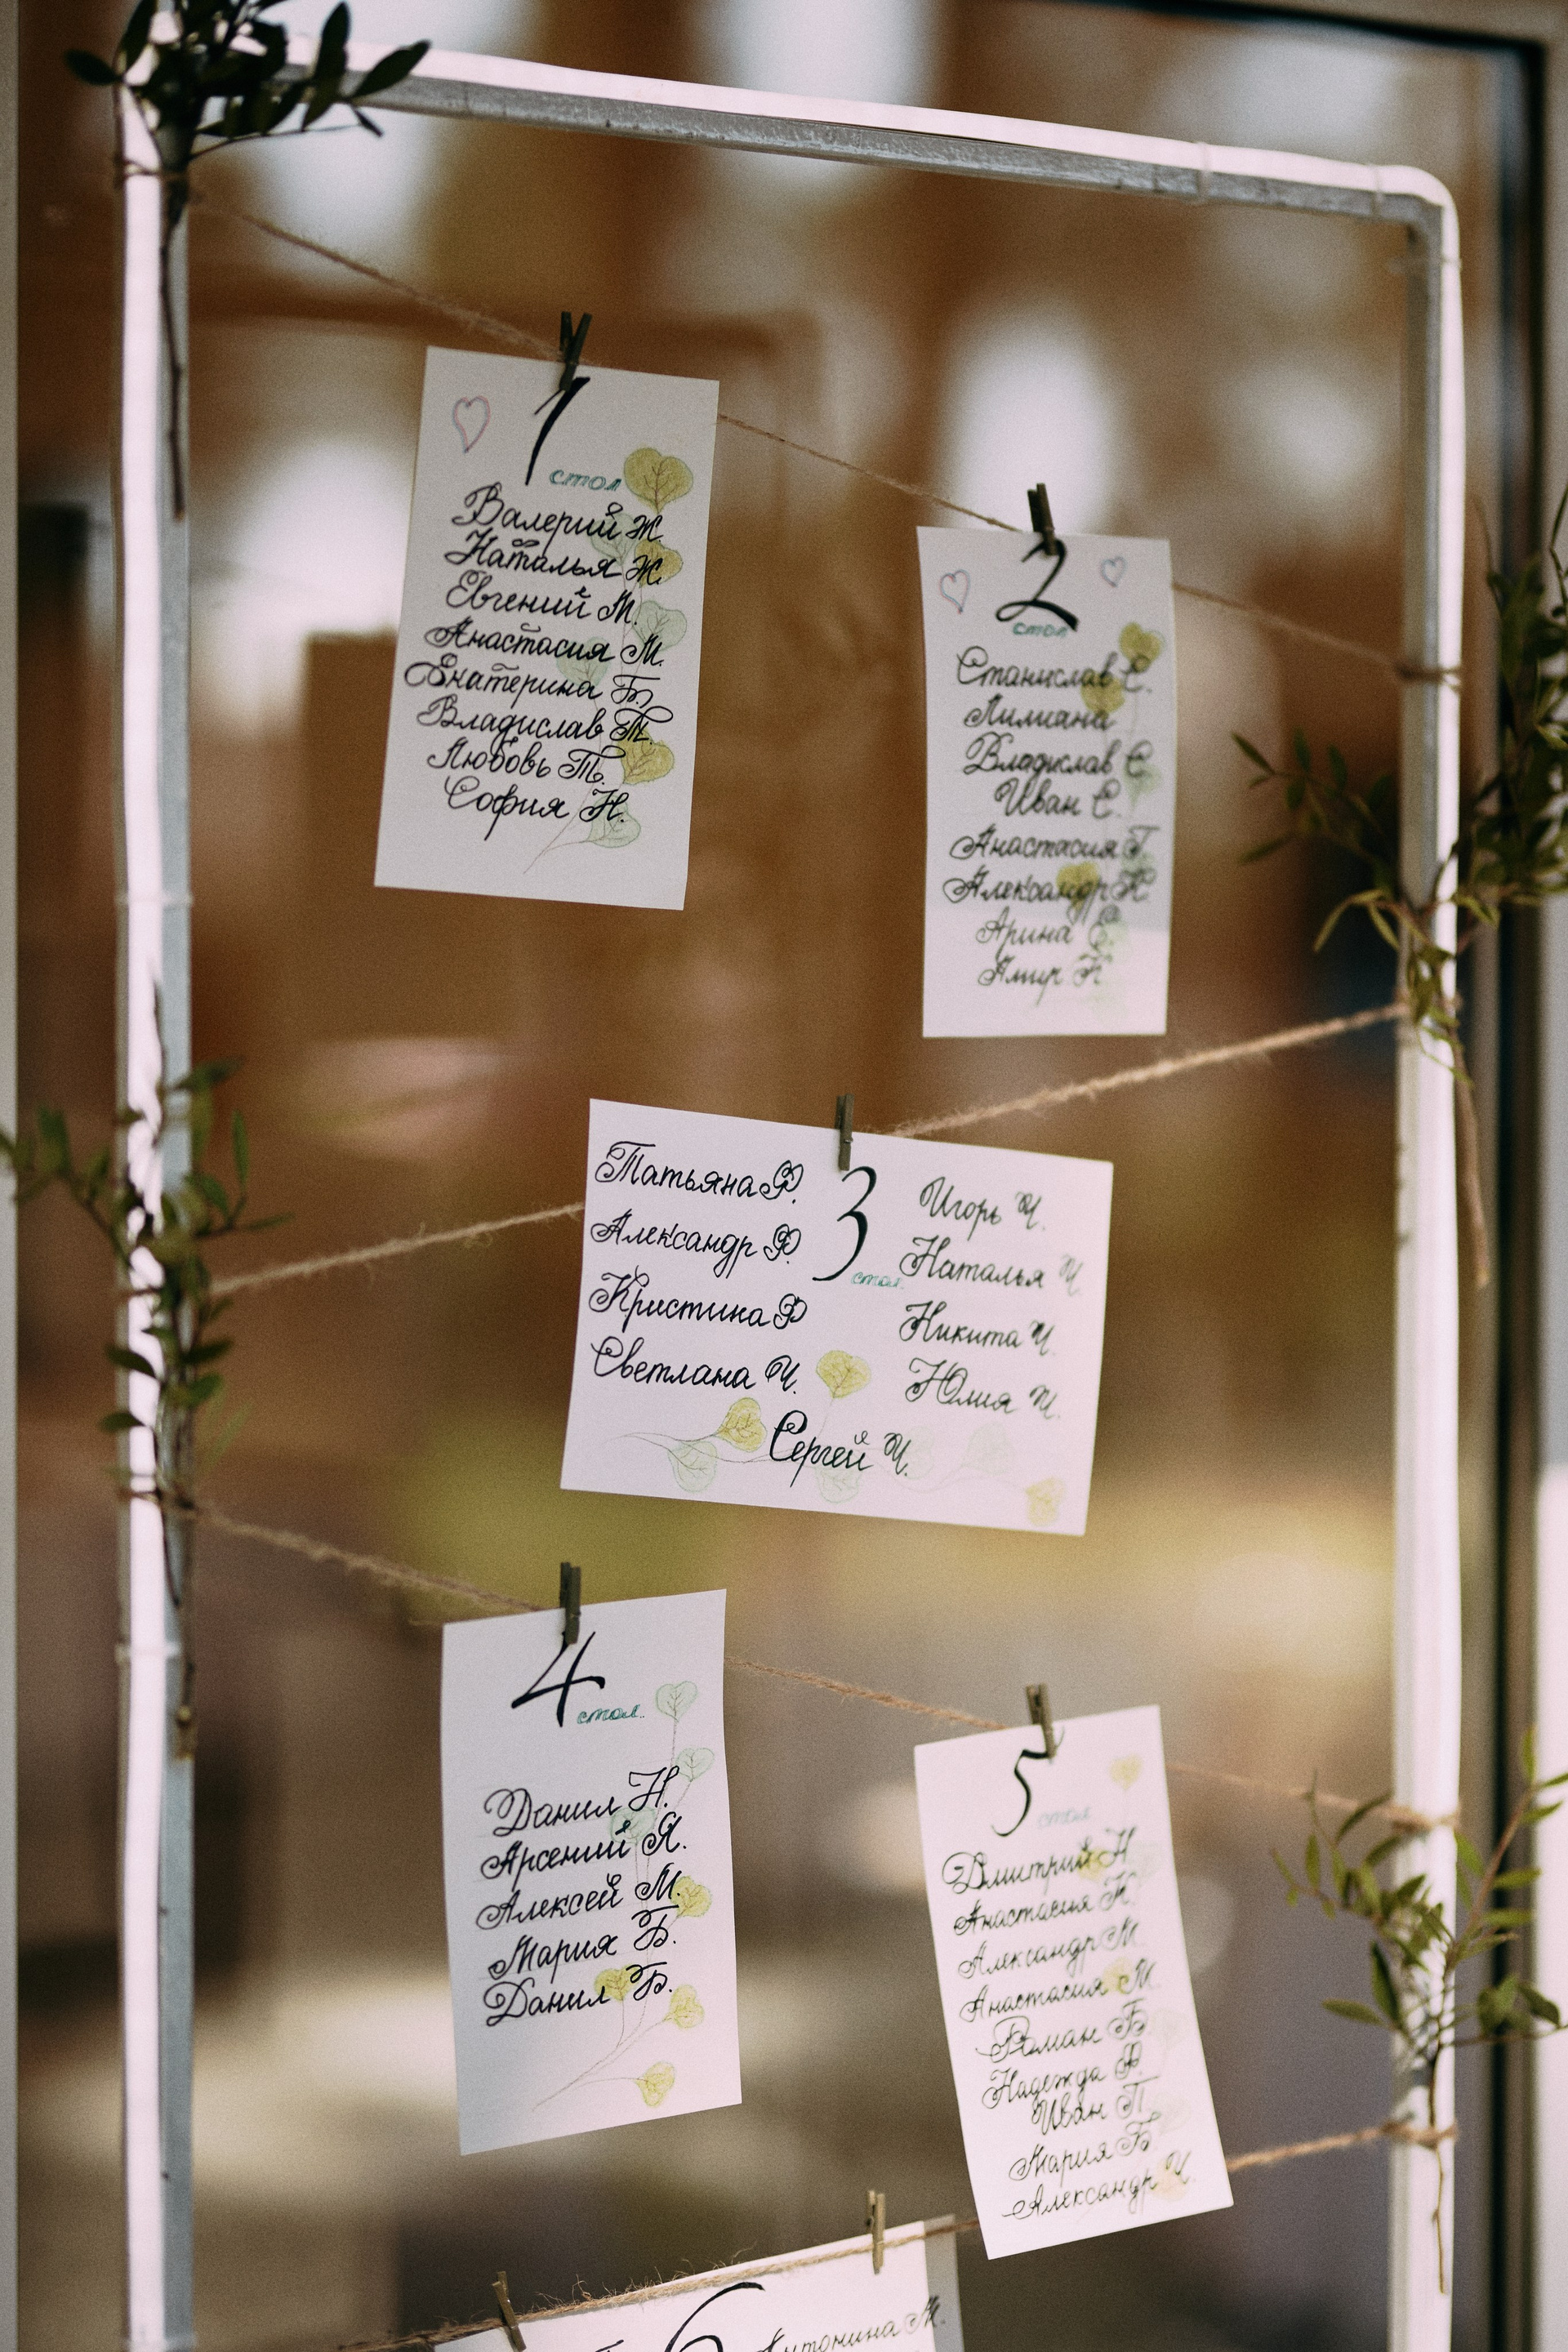 1
стол
Валерий Ж.
Наталья Ж.
Евгений М.
Анастасия М.
Екатерина Б.
Владислав Т.
Любовь Т.
София Н.
2
стол
Станислав С.
Лилиана
Владислав С
Иван С.
Анастасия Т.
Александр К.
Арина
Амир К
3
стол
Татьяна Ф.
Александр Ф
Кристина Ф
Светлана Ч.
Игорь Ч.
Наталья Ч.
Никита Ч.
Юлия Ч.
Сергей Ч.
4
стол.
Данил Н.
Арсений Я.
Алексей М.
Мария Б.
Данил Б.
5
стол
Дмитрий Н
Анастасия К.
Александр М
Анастасия М
Роман Б
Надежда Ф.
Иван П
Мария Б
Александр Ч.
6
Антонина М.